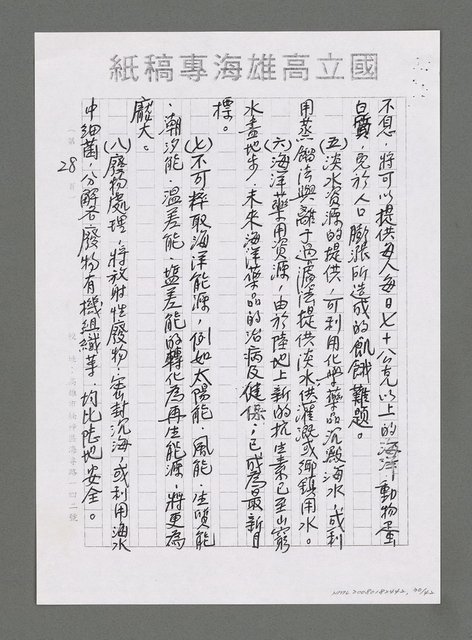 國立高雄海專稿紙
不息，將可以提供每人每日七十公克以上的海洋動物蛋
白質，免於人口膨脹所造成的飢餓難題。
(五)淡水資源的提供，可利用化學藥品沉澱海水，或利
用蒸餾法與離子過濾法提供淡水供灌溉或鄉鎮用水。
(六)海洋藥用資源，由於陸地上新的抗生素已至山窮
水盡地步，未來海洋藥品的治病及健保，已成為最新目
標。
(七)不可粹取海洋能源，例如太陽能、風能、生質能
、潮汐能、溫差能、鹽差能的轉化為再生能源，將更為
龐大。
(八)廢物處理，將放射性廢物，密封沉海，或利用海水
中細菌，分解各廢物有機組織等，均比陸地安全。
28
第 頁
NMTL20080182442, 30/42